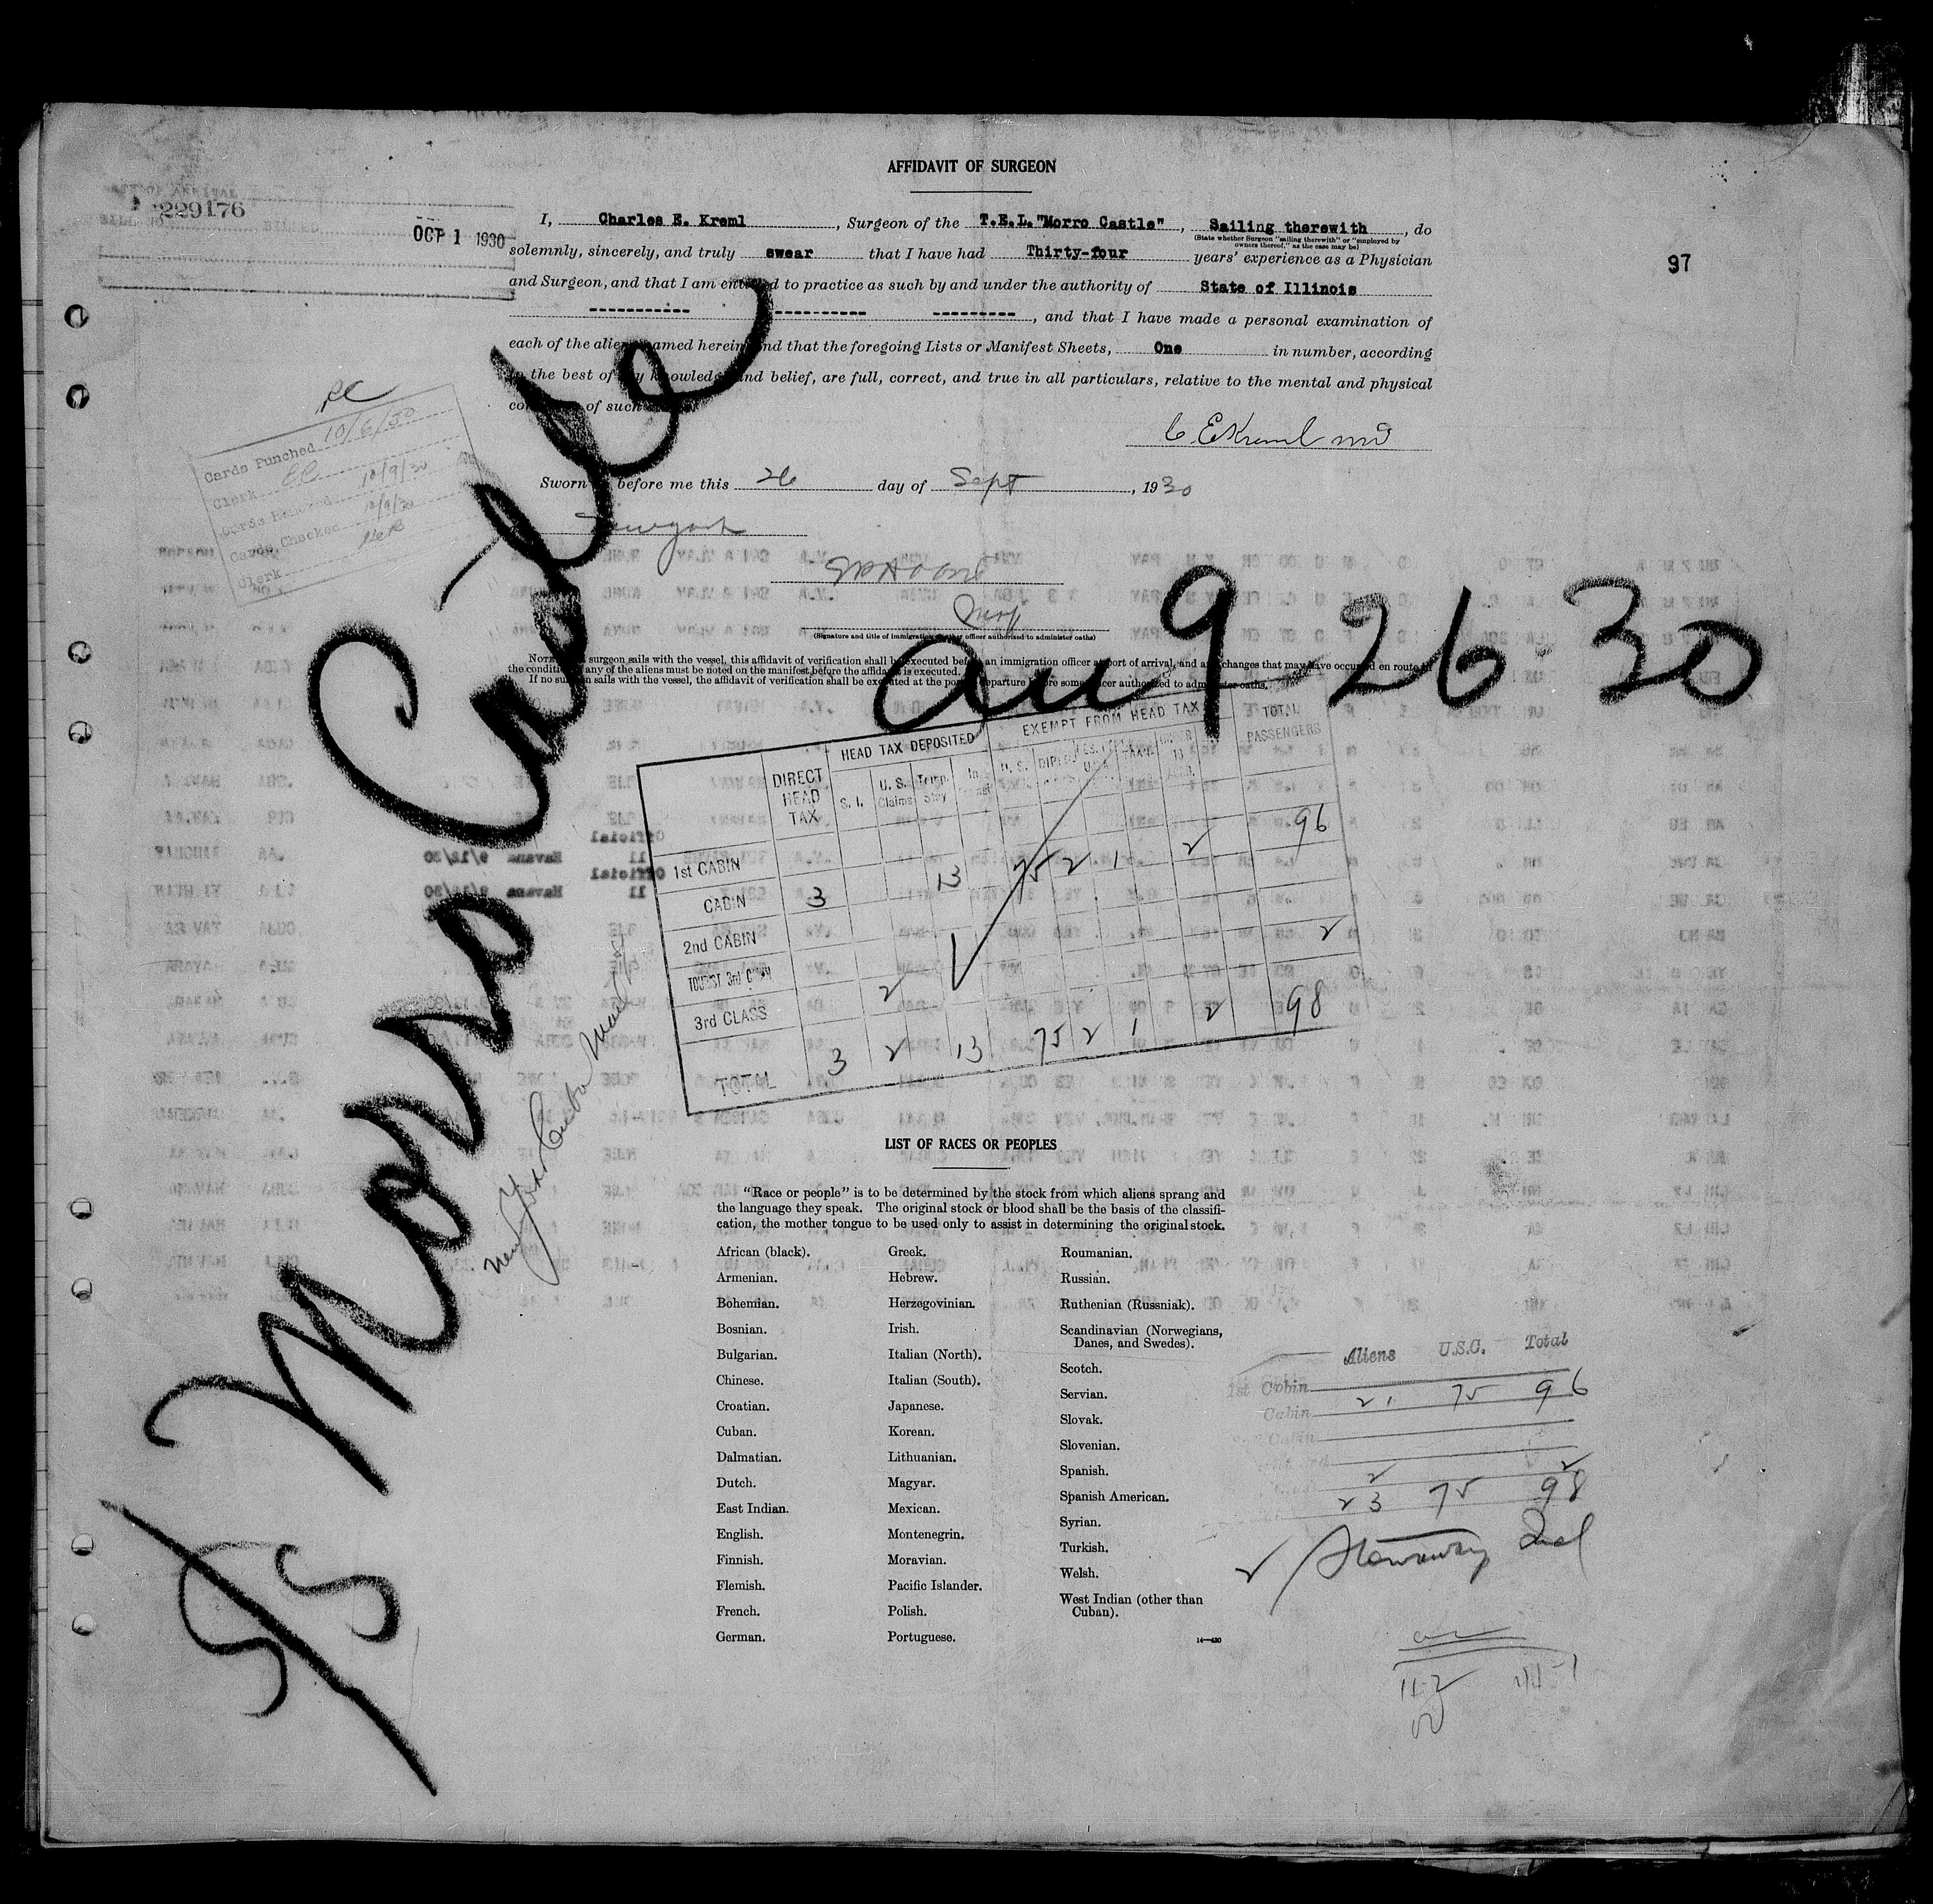 AFFIDAVIT OF SURGEON
229176
BILLED
OCT 1 1930
I, Charles E. Kreml, Surgeon of the T.E.L."Morro Castle", Sailing therewith, do
(State whether Surgeon "sailing therewith" or "employed by
owners thereof," as the case may be)
solemnly, sincerely, and truly swear that I have had Thirty-four years' experience as a Physician
97
and Surgeon, and that I am entitled to practice as such by and under the authority of State of Illinois
----------- ---------- ---------, and that I have made a personal examination of
each of the aliens named herein and that the foregoing Lists or Manifest Sheets, One in number, according
to the best of my knowledge and belief, are full, correct, and true in all particulars, relative to the mental and physical
condition of such
C. E Kreml MD
Cards Punched 10/6/30
Clerk
10/9/30
Cards Checked 10/9/30
Clerk
Sworn before me this 26 day of Sept, 1930
New York
Insp
(Signature and title of immigration or other officer authorized to administer oaths)
NOTE surgeon sails with the vessel, this affidavit of verification shall be executed before an immigration officer at port of arrival, and any changes that may have occurred en route in
the condition of any of the aliens must be noted on the manifest before the affidavit is executed.
If no surgeon sails with the vessel, the affidavit of verification shall be executed at the port of departure before some officer authorized to administer oaths.
S/S Morro Castle
arr 9-26-30
New York & Cuba Mail
DIRECT HEAD TAX HEAD TAX DEPOSITED EXEMPT FROM HEAD TAX TOTAL PASSENGERS
S. I. U. S. Claims Temp. Stay In U. S. DIPL.
1st CABIN 3 13 75 2 1 2 96
CABIN
2nd CABIN
TOURST 3rd
3rd CLASS 2 2
TOTAL 3 2 13 75 2 1 2 98
LIST OF RACES OR PEOPLES
"Race or people" is to be determined by the stock from which aliens sprang and
the language they speak. The original stock or blood shall be the basis of the classifi-
cation, the mother tongue to be used only to assist in determining the original stock.
African (black).
Armenian.
Bohemian.
Bosnian.
Bulgarian.
Chinese.
Croatian.
Cuban.
Dalmatian.
Dutch.
East Indian.
English.
Finnish.
Flemish.
French.
German.
Greek.
Hebrew.
Herzegovinian.
Irish.
Italian (North).
Italian (South).
Japanese.
Korean.
Lithuanian.
Magyar.
Mexican.
Montenegrin.
Moravian.
Pacific Islander.
Polish.
Portuguese.
Roumanian.
Russian.
Ruthenian (Russniak).
Scandinavian (Norwegians,
Danes, and Swedes).
Scotch.
Servian.
Slovak.
Slovenian.
Spanish.
Spanish American.
Syrian.
Turkish.
Welsh.
West Indian (other than
Cuban).
14—430
Aliens U.S.C. Total
1st Cabin 21 75 96
Cabin
2nd Cabin
2 2
23 75 98
Stowaway
11-2